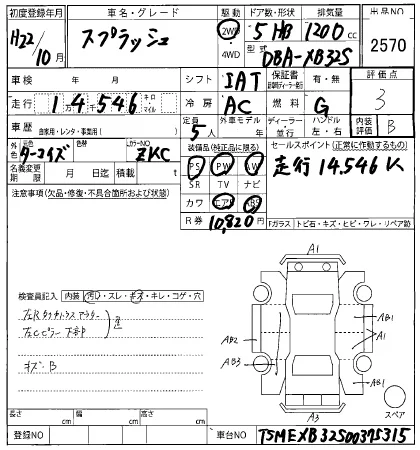 初度登録年月 車名・グレード 駆動 ドア数・形状 排気量 出品NO
H22/10月 スプラッシュ 2WD・4WD 5 HB 1200cc 2570
型式 DBA-XB32S
車検 年 月 シフト IAT 保証書 有・無 評価点
走行 1万4千546 キロ・マイル 冷房 AC 燃料 G 3
車歴 自家用・レンタ・事業用( ) 定員 5人 外車モデル 年 ディーラー・並行 ハンドル 左・右 内装評価 B
外色 元色 ターコイズ 色替 カラーNO ZKC 装備品(純正品に限る) セールスポイント (正常に作動するもの)
名義変更期限 月 日迄 積載 t PS PW AW 走行14.546K
注意事項(欠品・修復・不具合箇所および状態) SR TV ナビ
カワ エアB ABS
R券 10,820円 Fガラス トビ石・キズ・ヒビ・ワレ・リペア跡
A1
検査員記入 内装 汚レ・スレ・キズ・キレ・コゲ・穴
AB1
A1
AB2
左Cピラー下部
AB3
キズB
AB1
スペア
A3
長さ cm 幅 cm 高さ cm
登録NO 車台NO TSMEXB32S00375315